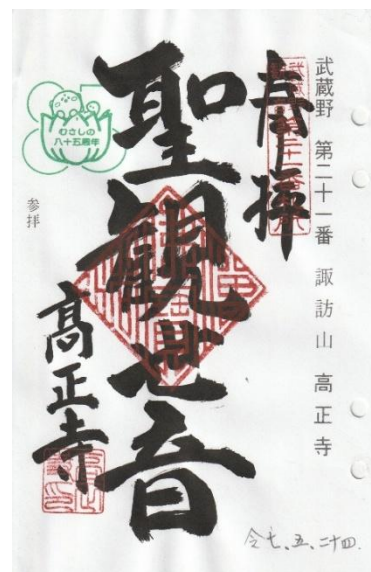 武蔵野 第二十一番 諏訪山 高正寺
奉拝
聖観世音
むさしの
八十五周年
参拝
高正寺
令七、五、二十四.